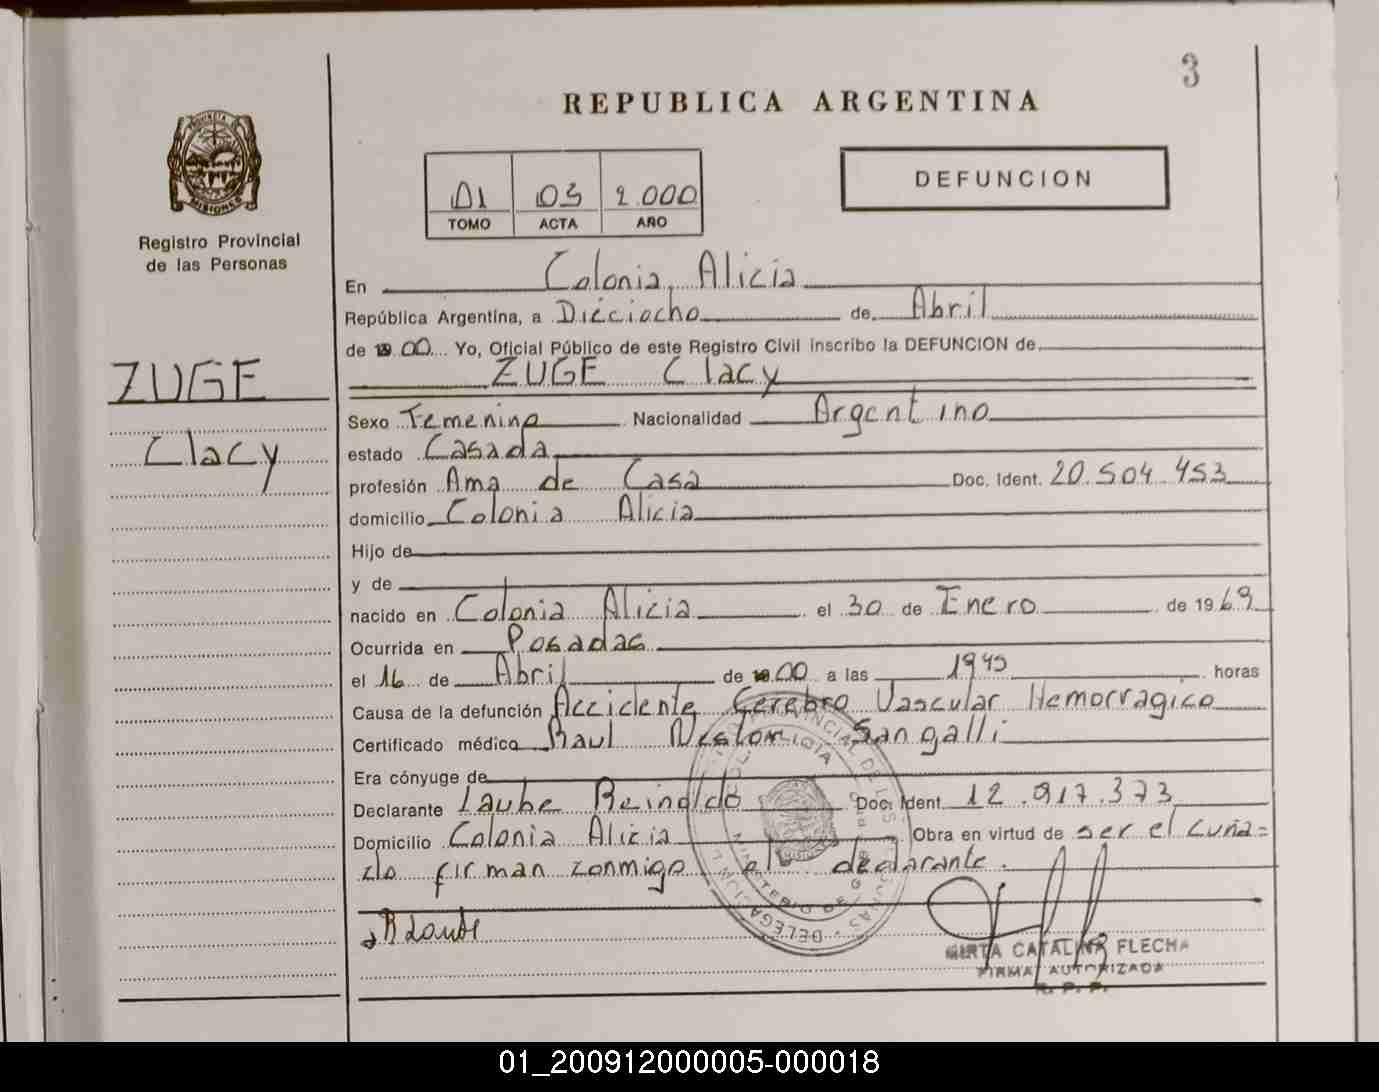 3
REPUBLICA ARGENTINA
PROVINCIA DE
MISIONES
Registro Provincial
de las Personas
01 03 2.000
TOMO ACTA AÑO
DEFUNCION
En Colonia Alicia
República Argentina, a Dieciocho de Abril
de 00 Yo, Oficial Público de este Registro Civil inscribo la DEFUNCION de
ZUGE Clacy
ZUGE
Clacy
Sexo Femenino Nacionalidad Argentino
estado Casada
profesión Ama de Casa Doc. Ident. 20.504.453
domicilio Colonia Alicia
Hijo de
y de
nacido en Colonia Alicia el 30 de Enero de 1969
Ocurrida en Posadas
el 16 de Abril de 00 a las 1945 horas
Causa de la defunción Accidente Cerebro Vascular Hemorragico
Certificado médico Raul Nestor Sangalli
Era cónyuge de
Declarante Laube Reinoldo Doc. Ident. 12.917.373
Domicilio Colonia Alicia Obra en virtud de ser el cuña=
do firman conmigo el declarante.
R Laube
MIRTA CATALINA FLECHA
FIRMA AUTORIZADA
R. P. P.
01_200912000005-000018